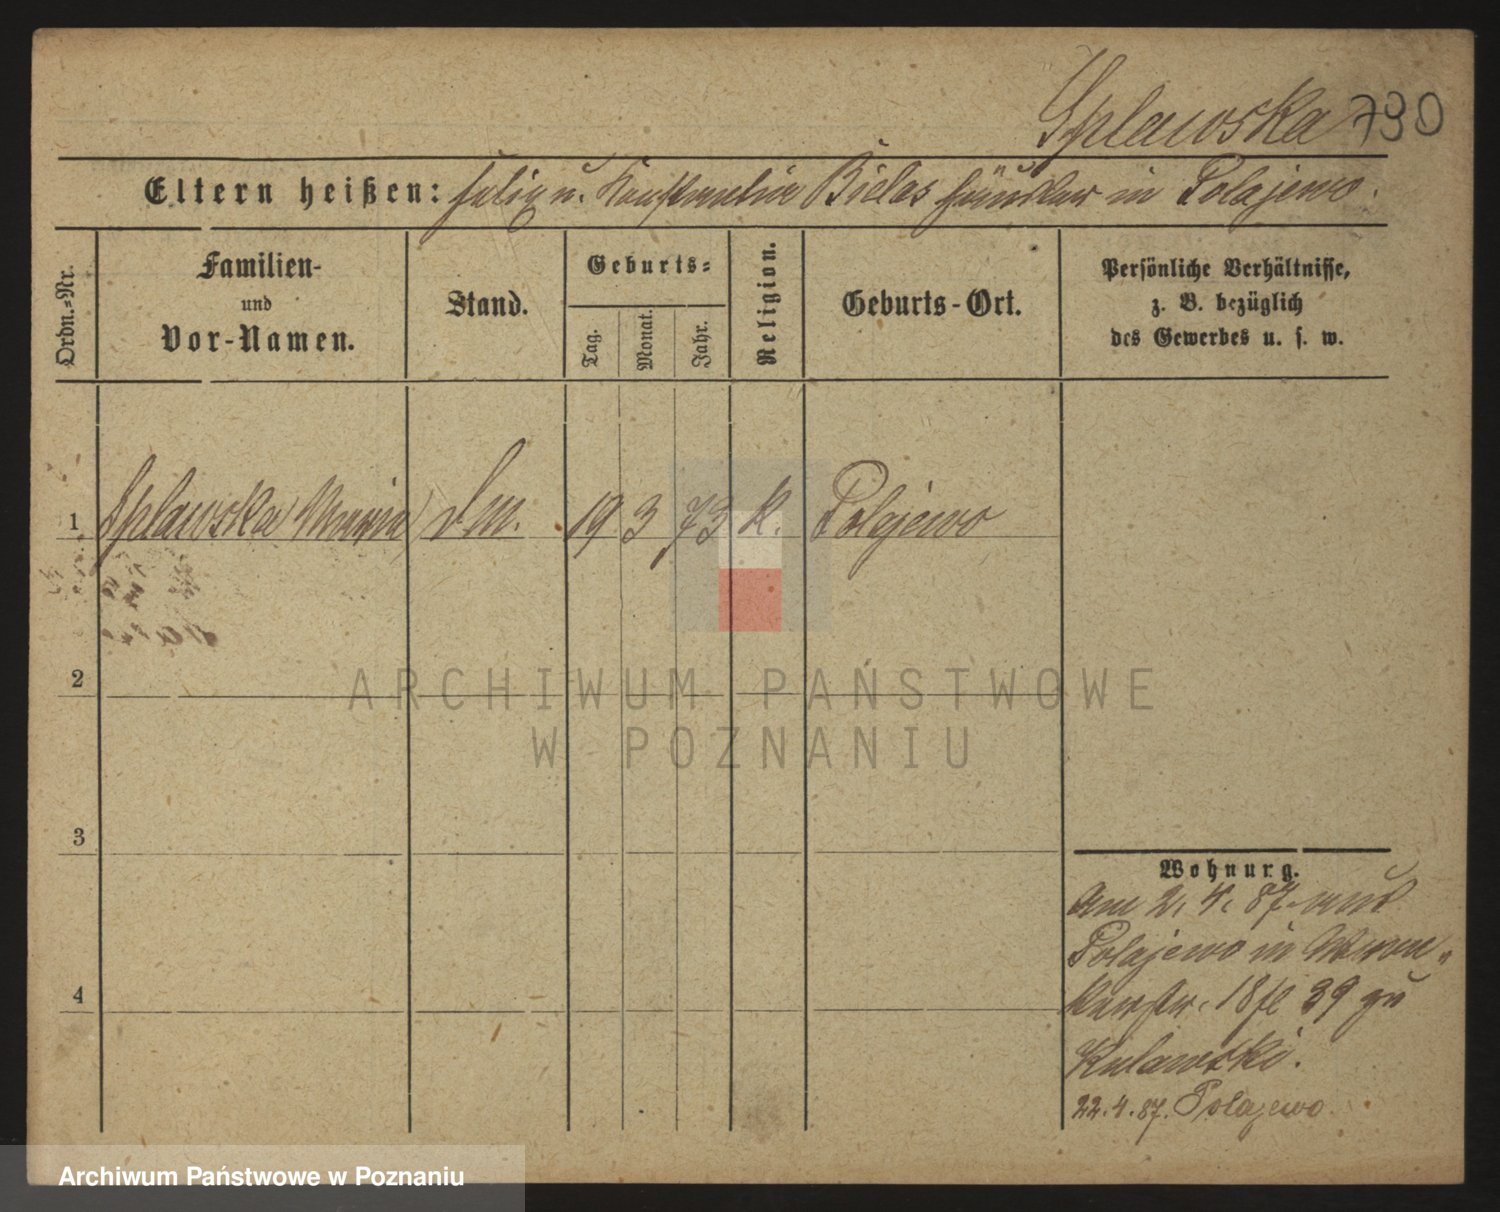 Splawska 790
Eltern heißen: Felix u. Konstantia Bielas Häusler in Polajewo.
Ordn.-Nr.
Familien-
und
Vor-Namen.
Stand.
Geburts-
Tag.
Monat.
Jahr.
Religion.
Geburts-Ort.
Persönliche Verhältnisse,
z. B. bezüglich
des Gewerbes u. s. w.
1 Splawska Maria d. M. 19 3 73 K. Polajewo
2
ARCHIWUM PAŃSTWOWE
W POZNANIU
3
4
Wohnung.
Am 2. 4. 87 aus
Polajewo in
18 39 zu
Kulawski.
22. 4. 87. Polajewo
Archiwum Państwowe w Poznaniu